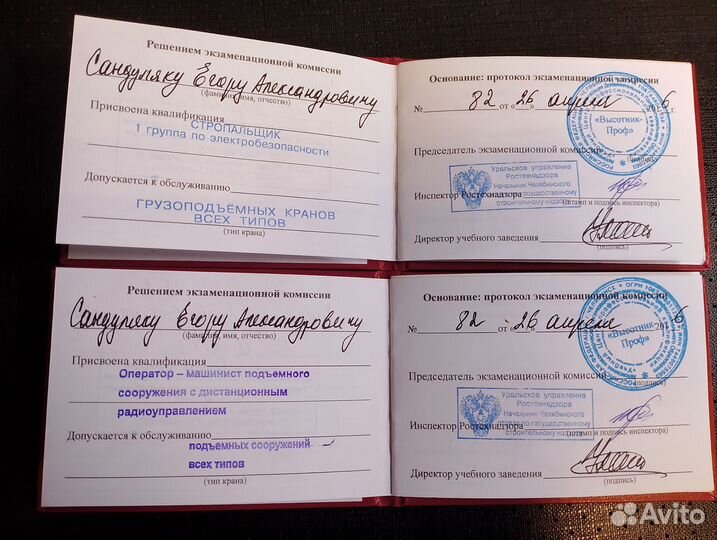 Решением экзаменационной комиссии
Сандуляку Егору Александровичу
(фамилия, имя, отчество)
Присвоена квалификация
СТРОПАЛЬЩИК
1 группа по электробезопасности
Допускается к обслуживанию
ГРУЗОПОДЪЁМНЫХ КРАНОВ
ВСЕХ ТИПОВ
(тип крана)
Основание: протокол экзаменационной комиссии
№ 82 от «26» апреля 6 г.
«Высотник-
Проф»
Председатель экзаменационной комиссии
(подпись)
Уральское управление
Ростехнадзора
Начальник Челябинского
отдела по государственному
строительному надзору
Инспектор Ростехнадзора
(штамп и подпись инспектора)
Директор учебного заведения
(подпись)
Решением экзаменационной комиссии
Сандуляку Егору Александровичу
(фамилия, имя, отчество)
Присвоена квалификация
Оператор – машинист подъемного
сооружения с дистанционным
радиоуправлением
Допускается к обслуживанию
подъемных сооружений
всех типов
(тип крана)
Основание: протокол экзаменационной комиссии
№ 82 от 26 апреля 201 6
«Высотник-
Проф»
Председатель экзаменационной комиссии
(подпись)
Уральское управление
Ростехнадзора
Начальник Челябинского
отдела по государственному
строительному надзору
Инспектор Ростехнадзора
(штамп и подпись инспектора)
Директор учебного заведения
(подпись)
Avito